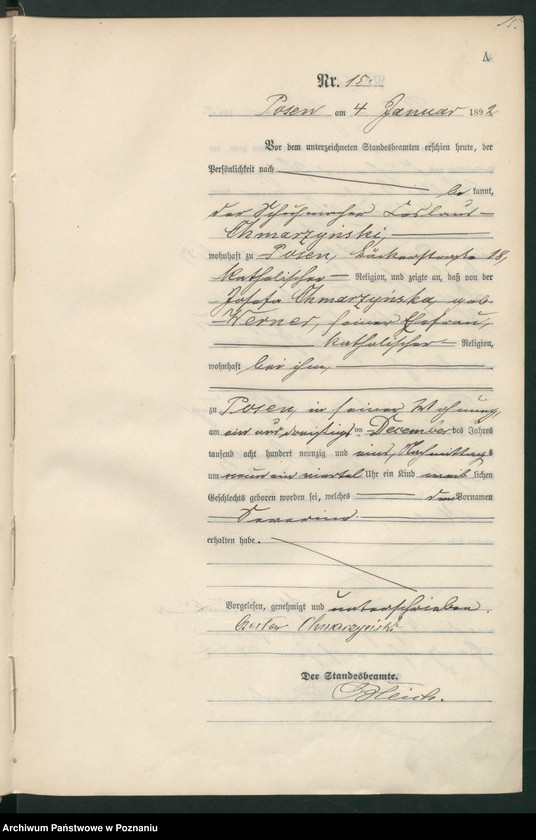 15.
A
Nr. 15.
Posen am 4 Januar 1892
Vor dem unterzeichneten Standesbeamten erschien heute, der
Persönlichkeit nach
be kannt,
der Schuhmacher
Chmarzyński,
wohnhaft zu Posen, Bäckerstraße 18,
katholischer Religion, und zeigte an, daß von der
Josefa Chmarzyńska, geb.
Werner, seiner Ehefrau,
katholischer Religion,
wohnhaft bei ihm,
zu Posen, in seiner Wohnung,
am ein und dreißigsten December des Jahres
tausend acht hundert neunzig und eins, Nachmittags
um neun ein viertel Uhr ein Kind weib lichen
Geschlechts geboren worden sei, welches den Vornamen
erhalten habe.
Vorgelesen, genehmigt und unterschrieben.
Chmarzyński
Der Standesbeamte.
Archiwum Państwowe w Poznaniu